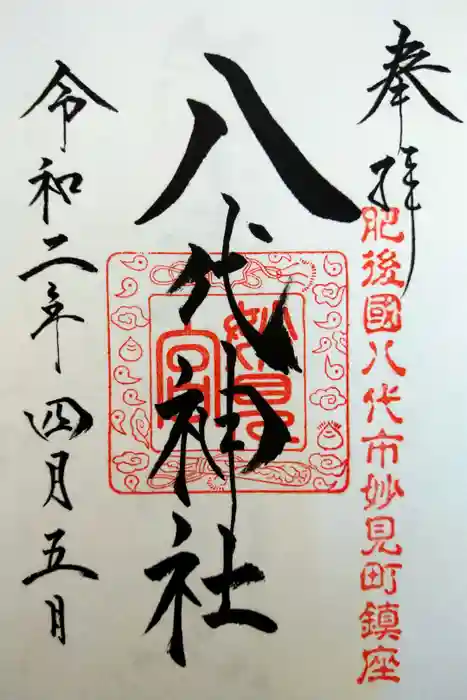 奉拝
肥後國八代市妙見町鎮座
八代神社
妙見宮
令和二年四月五月